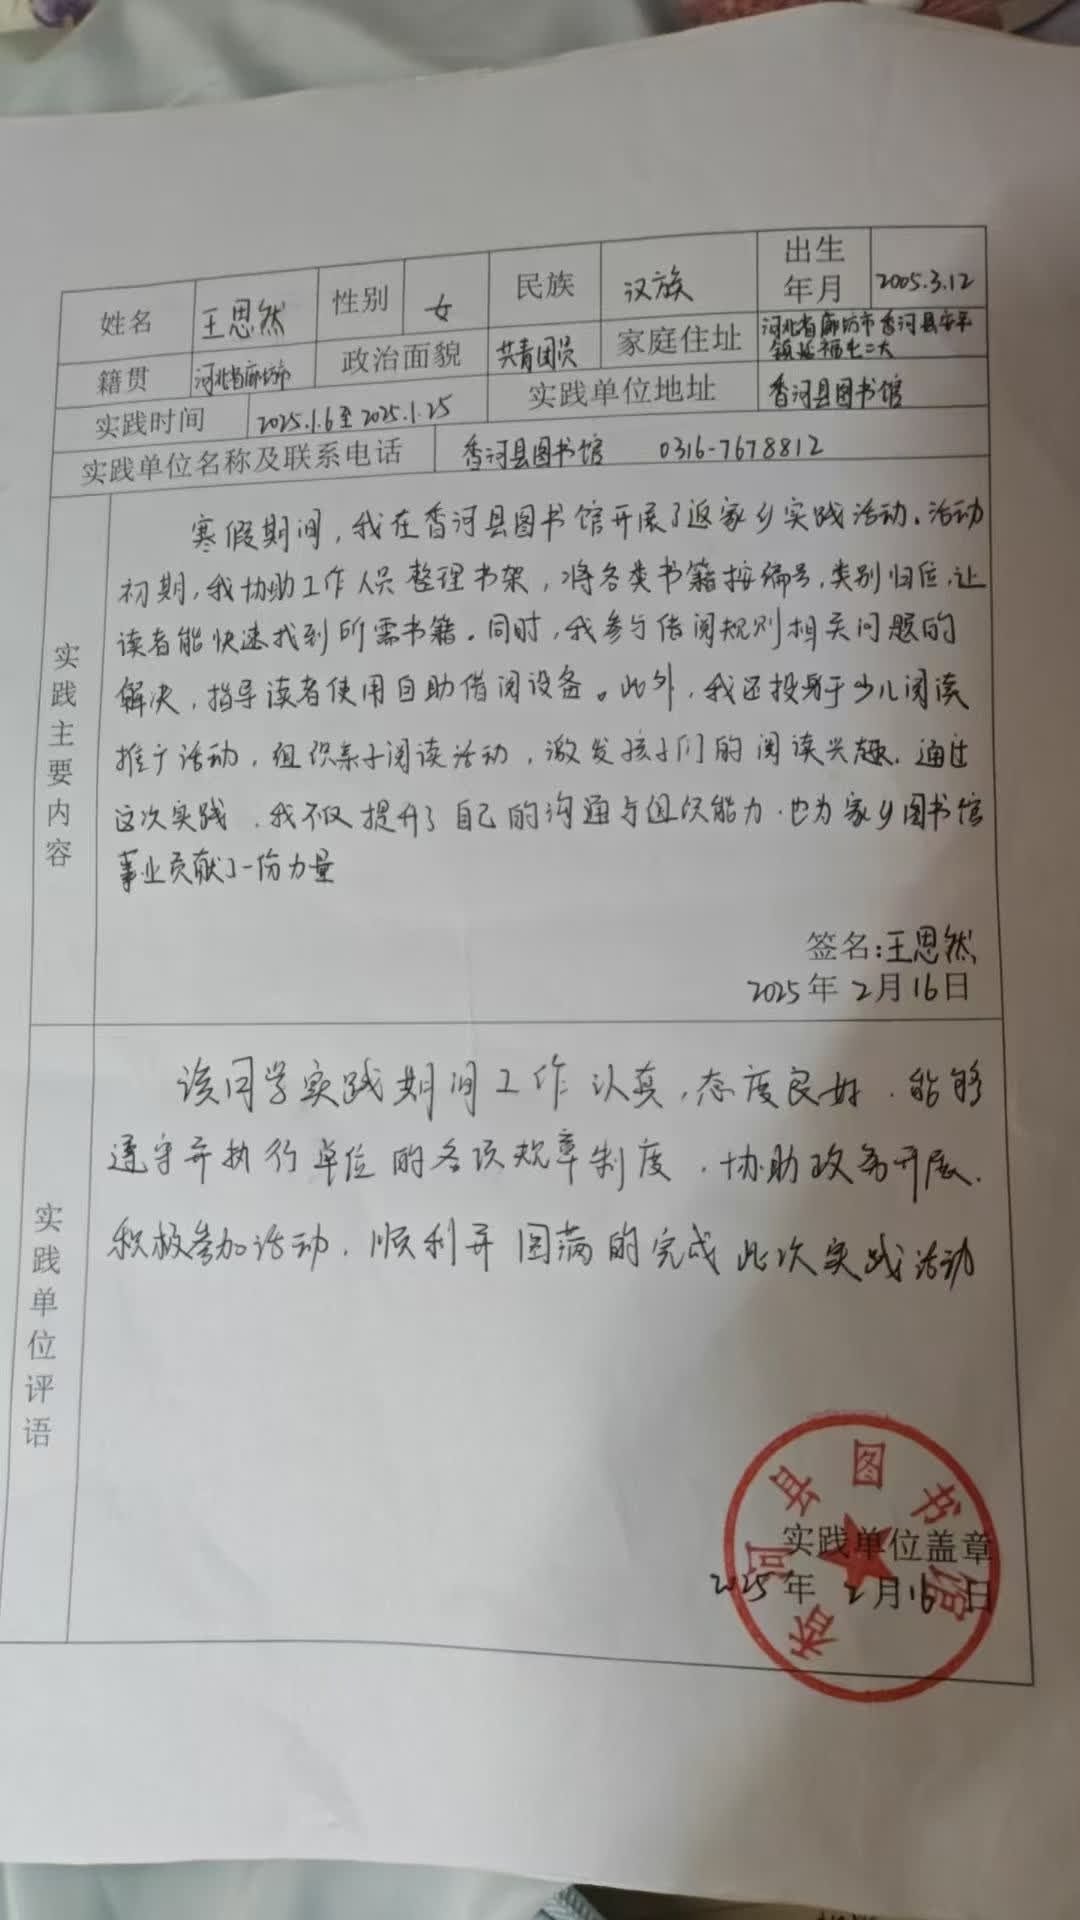 姓名 王思然 性别 女 民族 汉族 出生年月 2005.3.12
籍贯 河北省廊坊市 政治面貌 共青团员 家庭住址 河北省廊坊市香河县安平
镇延福屯二大
实践时间 2025.1.6至2025.1.25 实践单位地址 香河县图书馆
实践单位名称及联系电话 香河县图书馆 0316-7678812
实践主要内容
寒假期间，我在香河县图书馆开展了返家乡实践活动。活动
初期，我协助工作人员整理书架，将各类书籍按编号，类别归位，让
读者能快速找到所需书籍。同时，我参与借阅规则相关问题的
解决，指导读者使用自助借阅设备。此外，我还投身于少儿阅读
推广活动，组织亲子阅读活动，激发孩子们的阅读兴趣。通过
这次实践，我不仅提升了自己的沟通与组织能力，也为家乡图书馆
事业贡献了一份力量
签名：王思然
2025年2月16日
实践单位评语
该同学实践期间工作认真，态度良好，能够
遵守并执行单位的各项规章制度，协助政务开展，
积极参加活动，顺利并圆满的完成此次实践活动
香河县图书馆
实践单位盖章
2025年2月16日